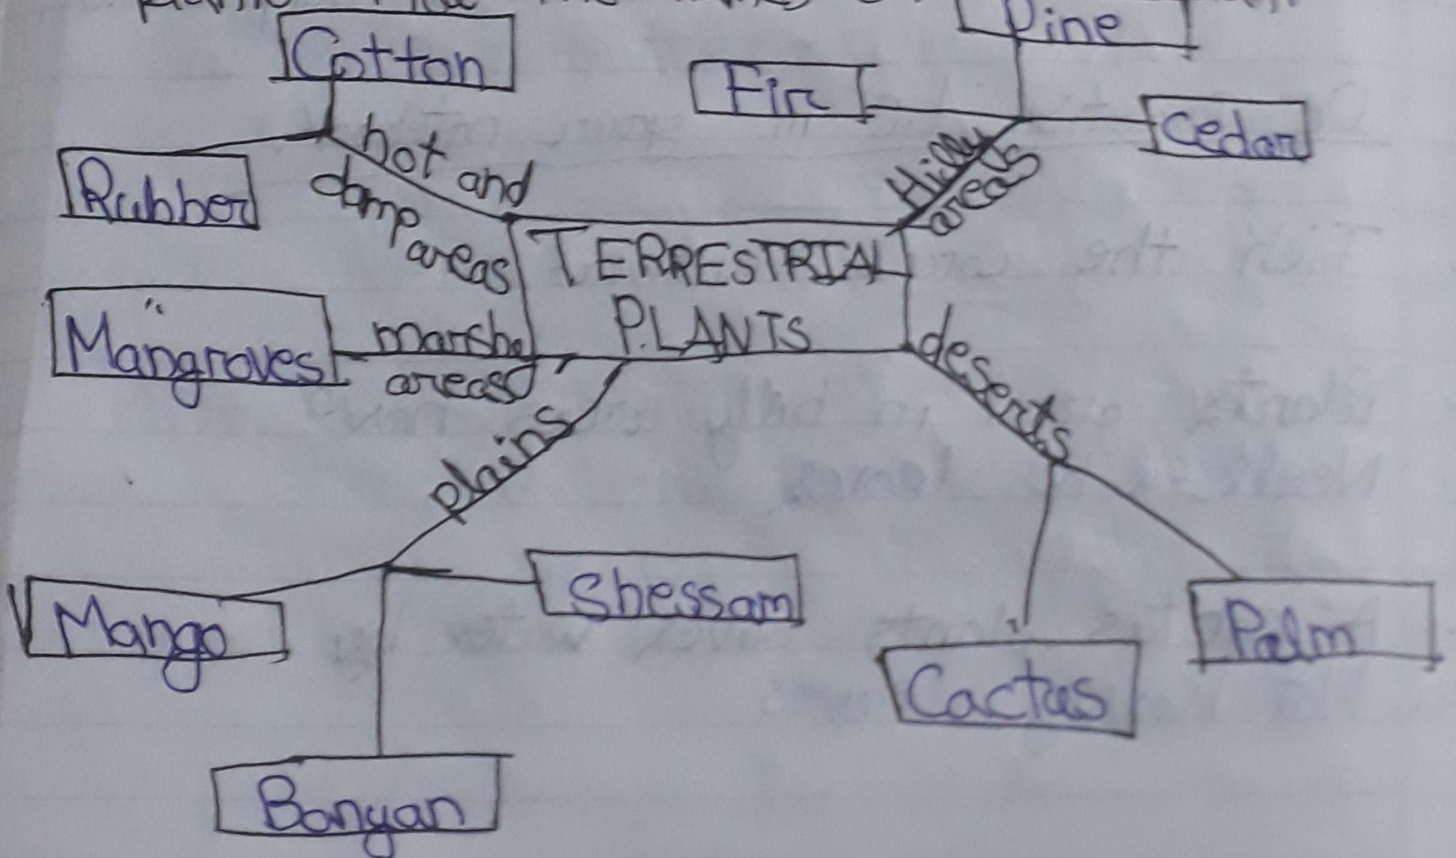 Pine
Cotton
Fir
Cedar
Rubber
hot and
damp
areas
Hilly
areas
TERRESTRIAL
PLANTS
Mangroves
marshy
areas
deserts
plains
Mango
Shessam
Cactus
Palm
Banyan